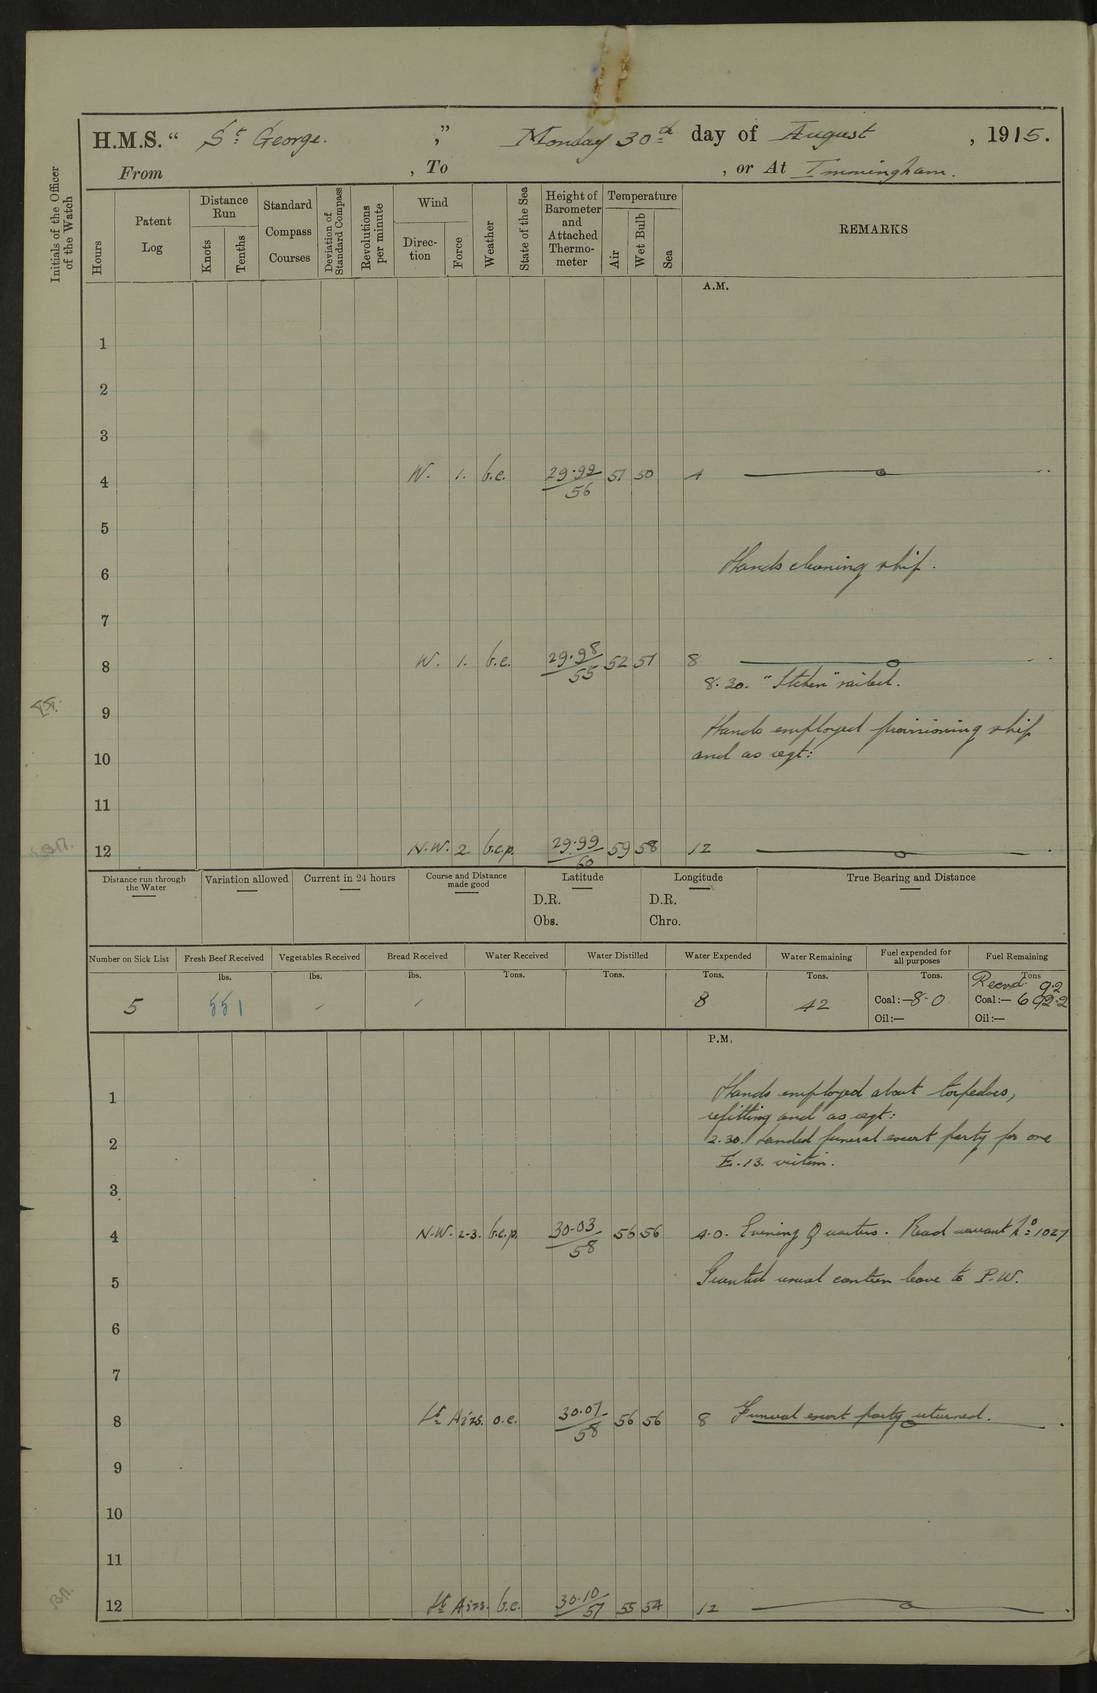 H.M.S. “ St George. ” Monday 30th day of August , 1915.
From , To , or At Immingham.
Initials of the Officer of the Watch
Hours
Patent Log
Distance Run
Knots
Tenths
Standard Compass Courses
Deviation of Standard Compass
Revolutions per minute
Wind
Direction
Force
Weather
State of the Sea
Height of Barometer and Attached Thermometer
Temperature
Air
Wet Bulb
Sea
REMARKS
A.M.
1
2
3
4 W. 1. b.c. 29.92 56 51 50 4
5
6 Hands cleaning ship.
7
8 W. 1. b.c. 29.98 55 52 51 8
8.30. "Itchen" sailed.
9
Hands employed provisioning ship
10 and as reqt:
11
12 N.W. 2 b.c.p. 29.99 60 59 58 12
Distance run through the Water
Variation allowed
Current in 24 hours
Course and Distance made good
Latitude
D.R.
Obs.
Longitude
D.R.
Chro.
True Bearing and Distance
Number on Sick List
5
Fresh Beef Received
lbs.
551
Vegetables Received
lbs.
-
Bread Received
lbs.
-
Water Received
Tons.
Water Distilled
Tons.
Water Expended
Tons.
8
Water Remaining
Tons.
42
Fuel expended for all purposes
Tons.
Coal:— 8.0
Oil:—
Fuel Remaining
Tons
Recvd. 9.2
Coal:— 692.2
Oil:—
P.M.
1 Hands employed about torpedoes,
refitting and as reqt:
2 2.30. Landed funeral escort party for one
E.13. victim.
3
4 N.W. 2-3. b.c.p. 30.03 58 56 56 4.0. Evening Quarters. Read warrant No 1027
5 Granted usual canteen leave to P.W.
6
7
8 Lt Airs. o.c. 30.07 58 56 56 8 Funeral escort party returned.
9
10
11
12 Lt Airs. b.c. 30.10 57 55 54 12